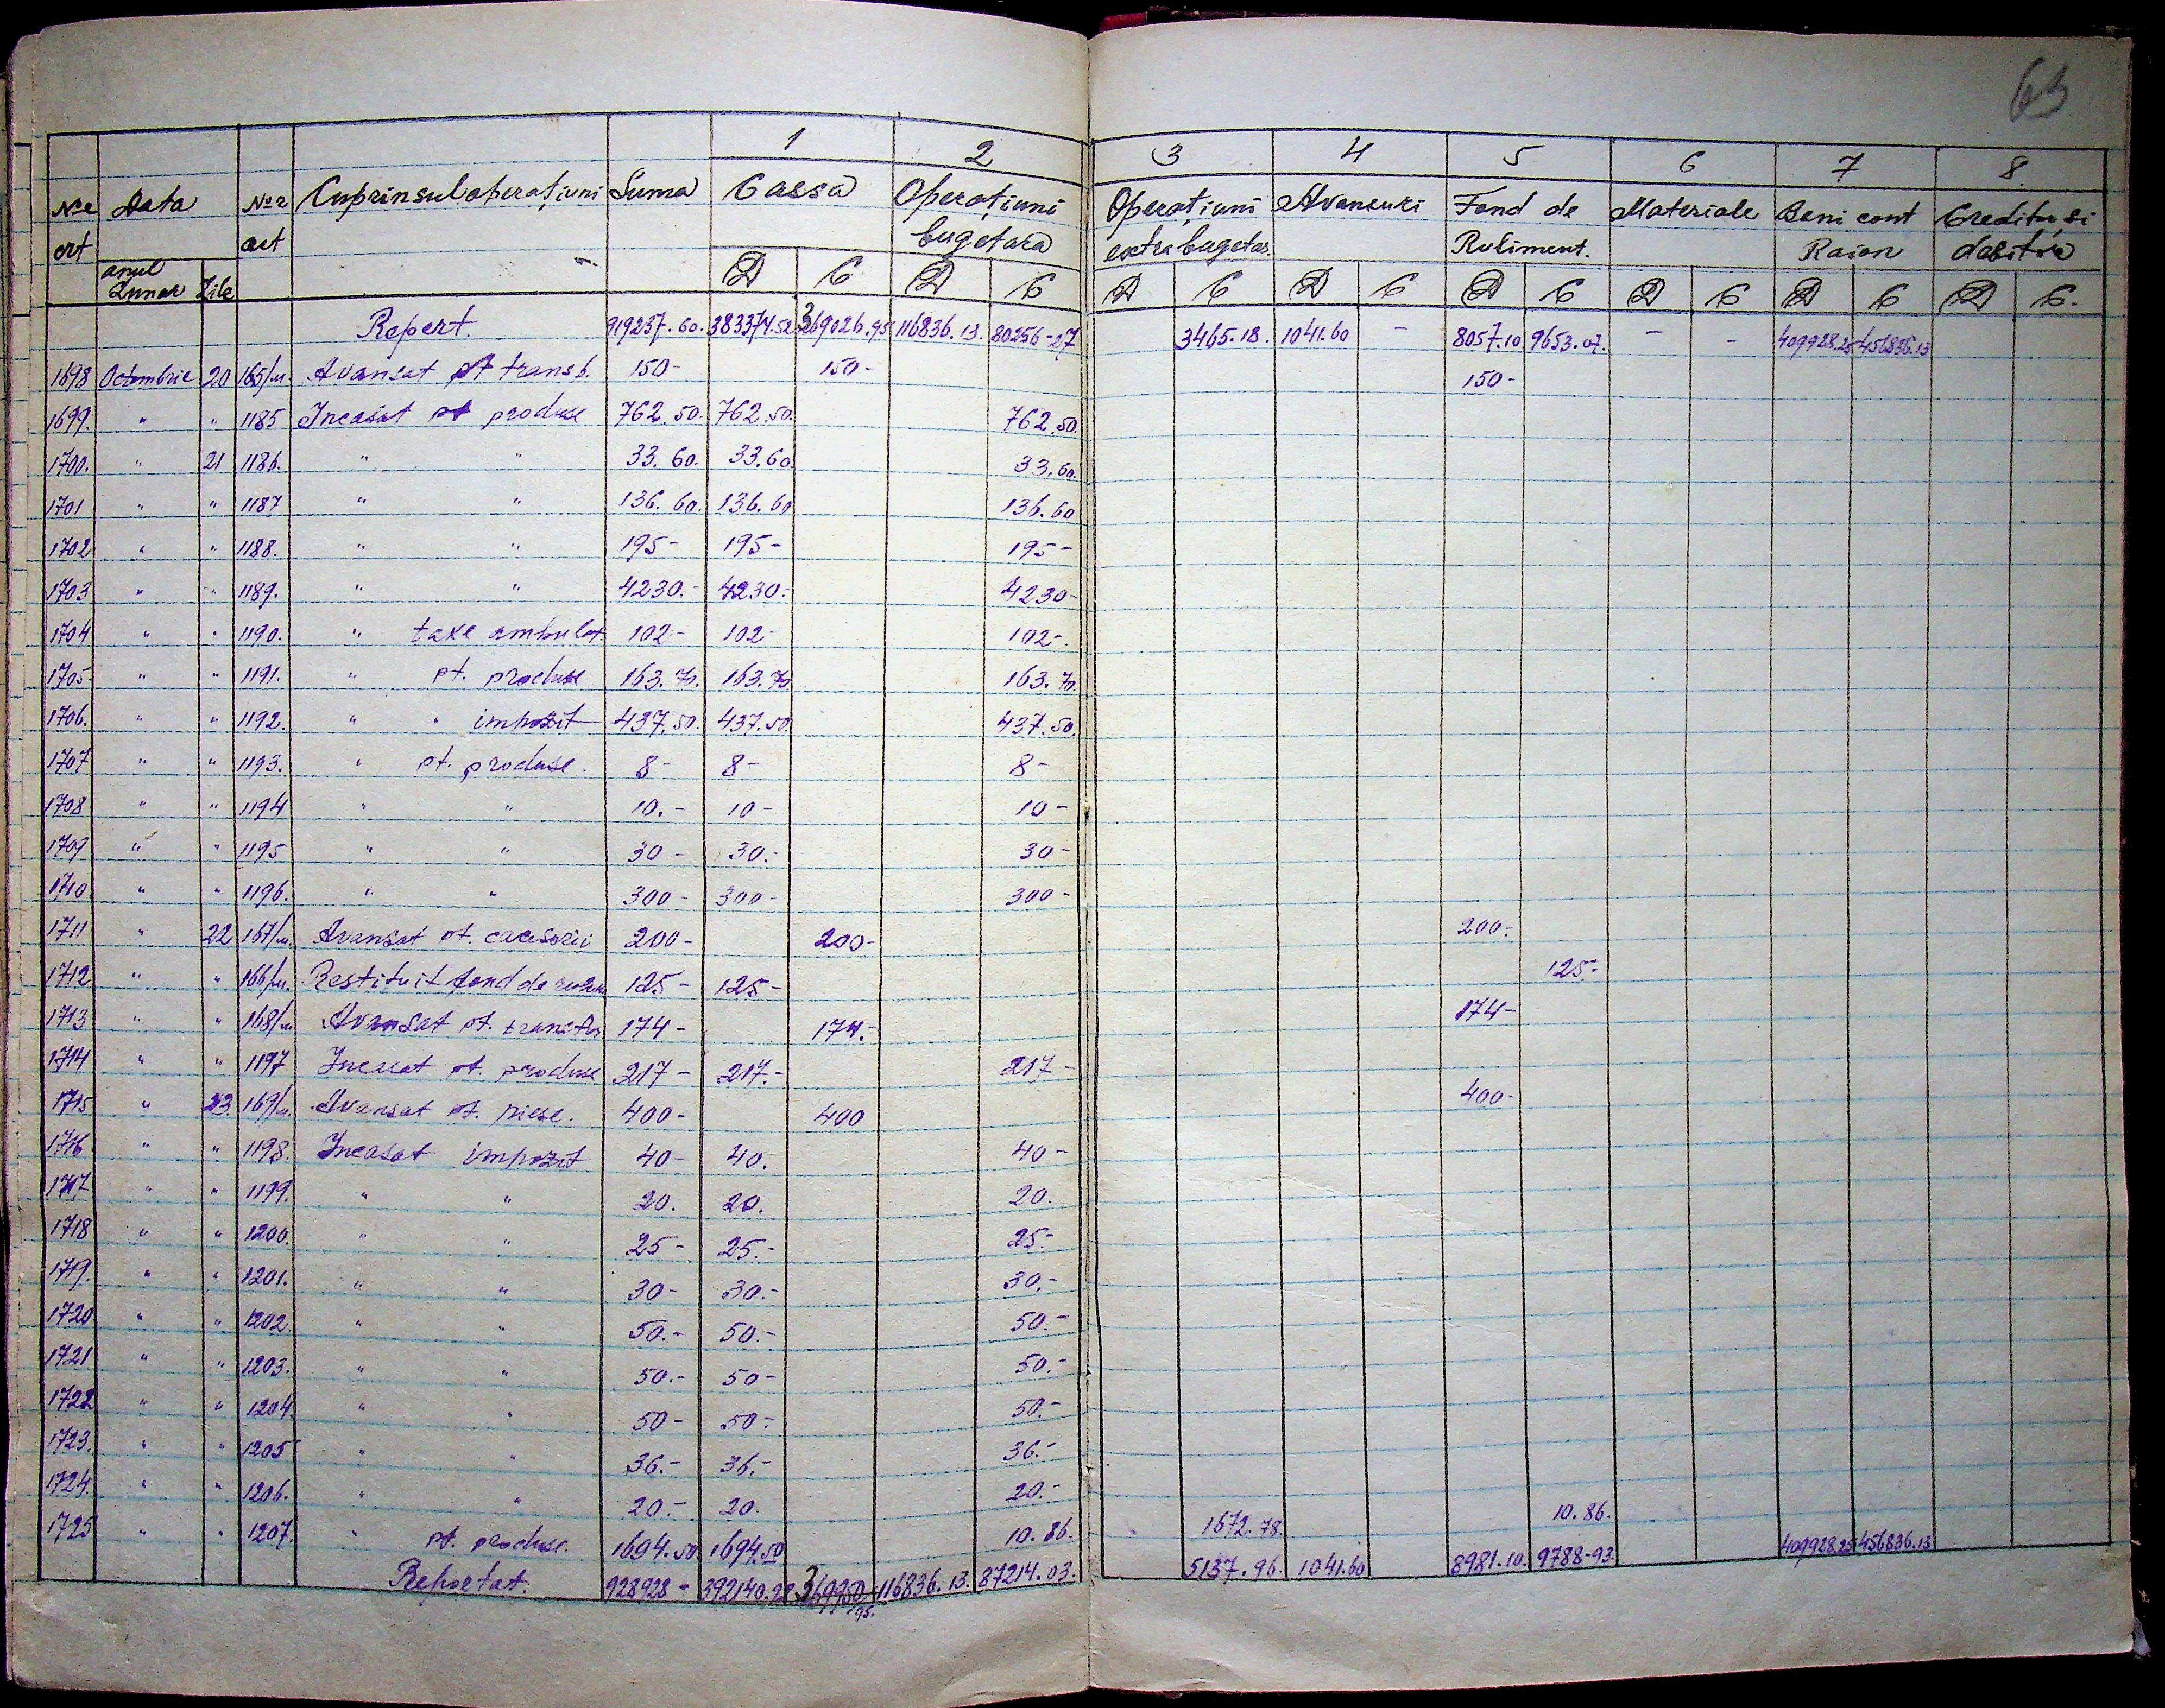 63
1 2 3 4 5 6 7 8
Nº ert Data Nº act Cuprinsul operațiuni Suma Cassa Operațiuni bugetara Operațiuni extrabugetar. Avansuri Fond de Ruliment. Materiale Beni cont Raion Creditu si debitu
anul Lunar Zile D C D C D C D C D C D C D C D C.
Report. 919237.60. 383374.52 369026.95 116836.13. 80256-27 3465.18. 1041.60 - 8057.10 9653.07. - - 409928.25 456836.13
1698 Octombrie 20 165/ Avansat pt transp. 150- 150- 150-
1699. " " 1185 Incasat pt produse 762.50. 762.50. 762.50.
1700. " 21 1186. " " 33.60. 33.60. 33.60.
1701 " " 1187 " " 136.60. 136.60 136.60
1702 " " 1188. " " 195- 195- 195-
1703 " " 1189. " " 4230.- 4230.- 4230-
1704 " " 1190. " taxe ambulat. 102- 102- 102-.
1705 " " 1191. " pt. produse 163.70. 163.70. 163.70.
1706. " " 1192. " " impozit 437.50. 437.50. 437.50.
1707 " " 1193. " pt. produse. 8- 8- 8-
1708 " " 1194 " " 10.- 10- 10-
1709 " " 1195 " " 30- 30.- 30-
1710. " " 1196. " " 300- 300- 300-
1711 " 22 167/ Avansat pt. 200- 200- 200.-
1712 " " 166/ Restituit fond de 125- 125- 125.-
1713 " " 168/ Avansat pt. 174- 174.- 174-
1714 " " 1197 Incasat pt. produse 217- 217.- 217-
1715 " 23. 169/ Avansat pt. piese. 400- 400 400-
1716 " " 1198. Incasat impozit 40- 40. 40-
1717 " " 1199. " " 20. 20. 20.
1718 " " 1200. " " 25- 25.- 25.-
1719. " " 1201. " " 30- 30.- 30.-
1720 " " 1202. " " 50.- 50.- 50.-
1721 " " 1203. " " 50.- 50- 50.-
1722 " " 1204. " " 50- 50.- 50.-
1723. " " 1205 " " 36.- 36.- 36.-
1724. " " 1206. " " 20.- 20. 20.-
1725 " " 1207. " pt. produse. 1694.50 1694.50 10.86. 1672.78. 10.86.
Reportat. 928928- 392140.22 369950.95. 116836.13. 87214.03. 5137.96. 1041.60 8981.10. 9788-93. 409928.25 456836.13